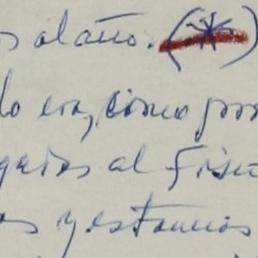 s al año. (*)
lo era, como por
gatos al fisc
as y estamos